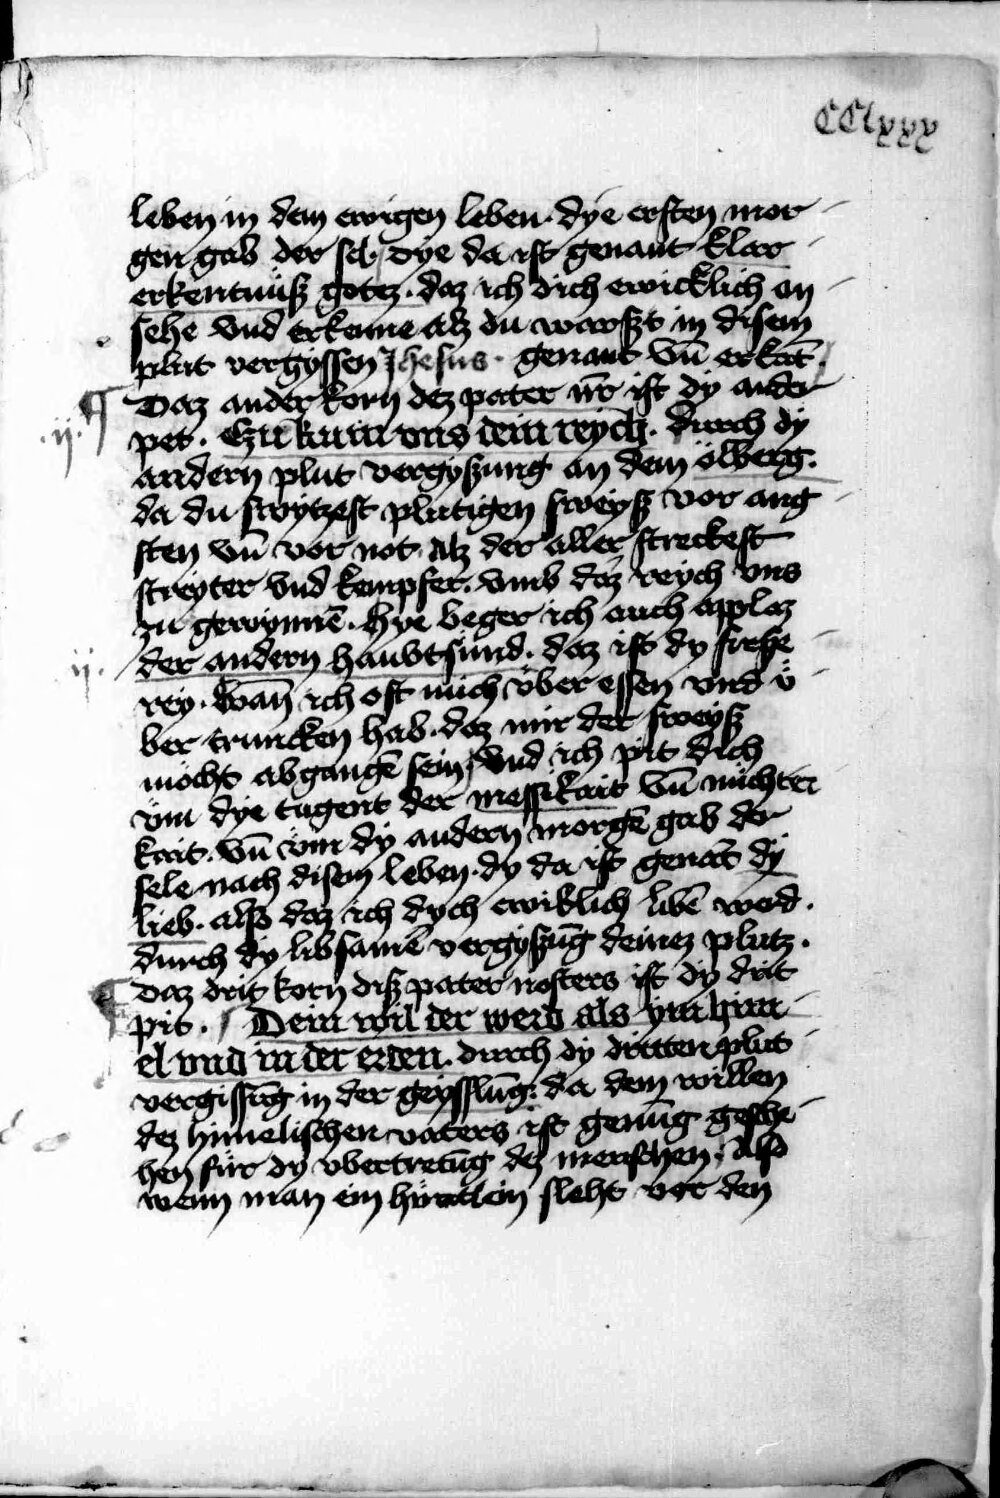 CClxxx
leben in dem ewigen leben. dye ersten mor
gen gab der sel. dye da ist genant klar
erkentnuß gotez. daz ich dich ewicklich an
sehe vnd erkenne alz du warst in disem
plut vergyssen Jhesus. genant vn̄ erkāt
Daz ander korn dez pater nr̄ ist dy ander
.ij. pet. Czu kum vns dein reych. durch dy
andern plut vergyßung an dem ölberg.
da du swytzest plutigen sweyß vor ang
sten vn̄ vor not alz der aller streckest
streyter vnd kempfer. vmb daz reych vns
zu gewynnē. Hye beger ich auch applaz
ij. der andern haubtsund. daz ist dy freße
rey. Wan̄ ich oft mich über essen vnd ü
ber truncken hab. daz mir der sweyß
möcht abgangē sein, vnd ich pit dich
vm dye tugent der messikait vn̄ nüchter
kait. vn̄ vm dy andern morgē gab der
sele nach disem leben. dy da ist genāt dy
lieb. also daz ich dych ewiklich libē werd.
durch dy libsamē vergyßūg deinez plutz.
Daz drit korn diß pater nosters ist dy drit
pit. Dein wil der werd als ym him
el vnd in der erden. durch dy dritten plut
vergissūg in der geysslūg. da dem willen
dez himelischen vaters ist genūg gesche
hen für dy vbertretūg dez menschen. Also
wenn man ein hüntlein sleht vor den